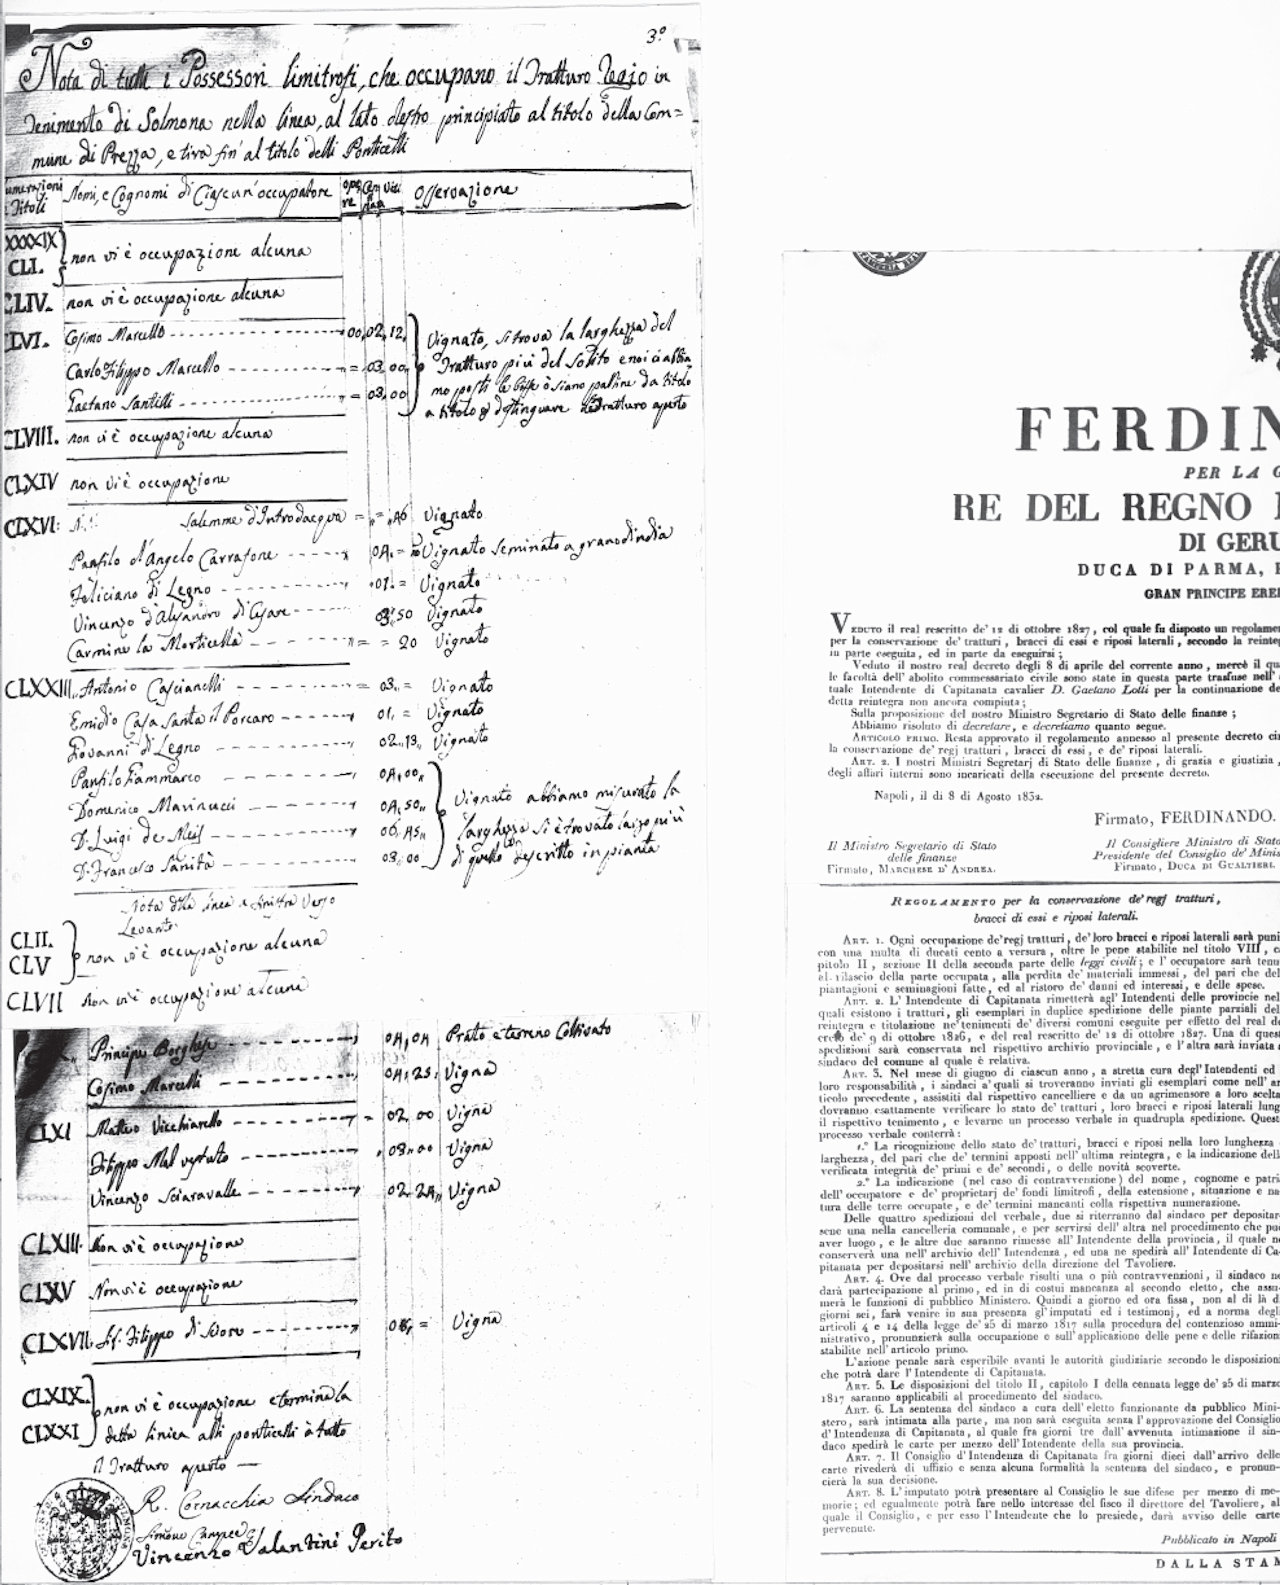 3.º
Nota di tutti i Possessori limitrofi, che occupano il Tratturo Regio in
Tenimento di Solmona nella linea, al lato destro principiato al titolo della Com=
mune di Prezza, e tira fin' al titolo delli Ponticelli
Nomi, e Cognomi di Ciascun' occupatore
Osservazione
Titoli
XXXXIX
CLI. non vi è occupazione alcuna
CLIV. non vi è occupazione alcuna
CLVI. Cosimo Marcello 00,02,12,
Carlo Filippo Marcello = 03,00
Gaetano Santilli = 03,00
Vignato, si trova la larghezza del
Tratturo più del solito e noi ci abbia
mo posti le biffe ò siano palline da titolo
a titolo distinguere Tratturo aperto
CLVIII. non vi è occupazione alcuna
CLXIV non vi è occupazione
CLXVI: Salemme d'Introdacqua Vignato
Panfilo d'Angelo Carrafone Vignato seminato a granodindia
Feliciano di Legno 01. = Vignato
Vincenzo d'Alesandro di Cesare 50 Vignato
Carmine la Morticella = = 20 Vignato
CLXXIII. Antonio Cascianelli = 03. = Vignato
Emidio Casasanta il Porcaro 01. = Vignato
Giovanni di Legno 02,,13, Vignato
Panfilo Fiammarco 0A,00,
Domenico Marinucci 0A,50,,
D. Luigi de Meis 06,A5,,
D. Francesco Sanità 03,00
Vignato abbiamo misurato la
larghezza si è trovato largo più
di quello descritto in pianta
Nota della linea a sinistra verso
Levante
CLII.
CLV non vi è occupazione alcuna
CLVII Non vi è occupazione alcuna
Principe Borghese 0A,0A Prato e terreno Coltivato
Cosimo Marcelli 0A,25, Vigna
CLXI Matteo Vicchiarello = 02,00 Vigna
Filippo Mal vestuto 03=00 Vigna
Vincenzo Sciaravalle 02,2A,, Vigna
CLXIII. Non vi è occupazione
CLXV Non vi è occupazione
CLXVII. Filippo di Vigna
CLXIX.
CLXXI non vi è occupazione e termina la
detta linica alli ponticelli à tutto
il Tratturo aperto
R. Cornacchia Sindaco
Simone
Vincenzo Valantini Perito
FERDIN
PER LA G
RE DEL REGNO
DI GERU
DUCA DI PARMA,
GRAN PRINCIPE ERE
VEDUTO il real rescritto de' 12 di ottobre 1827, col quale fu disposto un regolame
per la conservazione de' tratturi, bracci di essi e riposi laterali, secondo la reinte
in parte eseguita, ed in parte da eseguirsi;
Veduto il nostro real decreto degli 8 di aprile del corrente anno, mercè il qu
le facoltà dell' abolito commessariato civile sono state in questa parte trasfuse nell'
tuale Intendente di Capitanata cavalier D. Gaetano Lotti per la continuazione de
detta reintegra non ancora compiuta;
Sulla proposizione del nostro Ministro Segretario di Stato delle finanze;
Abbiamo risoluto di decretare, e decretiamo quanto segue.
ARTICOLO PRIMO. Resta approvato il regolamento annesso al presente decreto cir
la conservazione de' regj tratturi, bracci di essi, e de' riposi laterali.
ART. 2. I nostri Ministri Segretarj di Stato delle finanze, di grazia e giustizia,
degli affari interni sono incaricati della esecuzione del presente decreto.
Napoli, il dì 8 di Agosto 1832.
Firmato, FERDINANDO.
Il Ministro Segretario di Stato
delle finanze
Firmato, MARCHESE D' ANDREA.
Il Consigliere Ministro di Stato
Presidente del Consiglio de' Minis
Firmato, DUCA DI GUALTIERI.
REGOLAMENTO per la conservazione de' regj tratturi,
bracci di essi e riposi laterali.
ART. 1. Ogni occupazione de' regj tratturi, de' loro bracci e riposi laterali sarà puni
con una multa di ducati cento a versura, oltre le pene stabilite nel titolo VIII, ca
pitolo II, sezione II della seconda parte delle leggi civili; e l' occupatore sarà tenu
al rilascio della parte occupata, alla perdita de' materiali immessi, del pari che del
piantagioni e seminagioni fatte, ed al ristoro de' danni ed interessi, e delle spese.
ART. 2. L' Intendente di Capitanata rimetterà agl' Intendenti delle provincie nel
quali esistono i tratturi, gli esemplari in duplice spedizione delle piante parziali del
reintegra e titolazione ne' tenimenti de' diversi comuni eseguite per effetto del real de
creto de' 9 di ottobre 1826, e del real rescritto de' 12 di ottobre 1827. Una di quest
spedizioni sarà conservata nel rispettivo archivio provinciale, e l' altra sarà inviata a
sindaco del comune al quale è relativa.
ART. 3. Nel mese di giugno di ciascun anno, a stretta cura degl' Intendenti ed
loro responsabilità, i sindaci a' quali si troveranno inviati gli esemplari come nell' ar
ticolo precedente, assistiti dal rispettivo cancelliere e da un agrimensore a loro scelta
dovranno esattamente verificare lo stato de' tratturi, loro bracci e riposi laterali lung
il rispettivo tenimento, e levarne un processo verbale in quadrupla spedizione. Quest
processo verbale conterrà:
1.º La ricognizione dello stato de' tratturi, bracci e riposi nella loro lunghezza
larghezza, del pari che de' termini apposti nell' ultima reintegra, e la indicazione dell
verificata integrità de' primi e de' secondi, o delle novità scoverte.
2.º La indicazione (nel caso di contravvenzione) del nome, cognome e patri
dell' occupatore e de' proprietarj de' fondi limitrofi, della estensione, situazione e na
tura delle terre occupate, e de' termini mancanti colla rispettiva numerazione.
Delle quattro spedizioni del verbale, due si riterranno dal sindaco per depositar
sene una nella cancelleria comunale, e per servirsi dell' altra nel procedimento che può
aver luogo, e le altre due saranno rimesse all' Intendente della provincia, il quale ne
conserverà una nell' archivio dell' Intendenza, ed una ne spedirà all' Intendente di Ca-
pitanata per depositarsi nell' archivio della direzione del Tavoliere.
ART. 4. Ove dal processo verbale risulti una o più contravvenzioni, il sindaco ne
darà partecipazione al primo, ed in di costui mancanza al secondo eletto, che assu-
merà le funzioni di pubblico Ministero. Quindi a giorno ed ora fissa, non al di là di
giorni sei, farà venire in sua presenza gl' imputati ed i testimonj, ed a norma degli
articoli 4 e 14 della legge de' 25 di marzo 1817 sulla procedura del contenzioso ammi-
nistrativo, pronunzierà sulla occupazione e sull' applicazione delle pene e delle rifazioni
stabilite nell' articolo primo.
L' azione penale sarà esperibile avanti le autorità giudiziarie secondo le disposizioni
che potrà dare l' Intendente di Capitanata.
ART. 5. Le disposizioni del titolo II, capitolo I della cennata legge de' 25 di marzo
1817 saranno applicabili al procedimento del sindaco.
ART. 6. La sentenza del sindaco a cura dell' eletto funzionante da pubblico Mini-
stero, sarà intimata alla parte, ma non sarà eseguita senza l' approvazione del Consiglio
d' Intendenza di Capitanata, al quale fra giorni tre dall' avvenuta intimazione il sin-
daco spedirà le carte per mezzo dell' Intendente della sua provincia.
ART. 7. Il Consiglio d' Intendenza di Capitanata fra giorni dieci dall' arrivo delle
carte rivederà di uffizio e senza alcuna formalità la sentenza del sindaco, e pronun-
cierà la sua decisione.
ART. 8. L' imputato potrà presentare al Consiglio le sue difese per mezzo di me-
morie; ed egualmente potrà fare nello interesse del fisco il direttore del Tavoliere, al
quale il Consiglio, e per esso l' Intendente che lo presiede, darà avviso delle carte
pervenute.
Pubblicato in Napoli
DALLA STAM